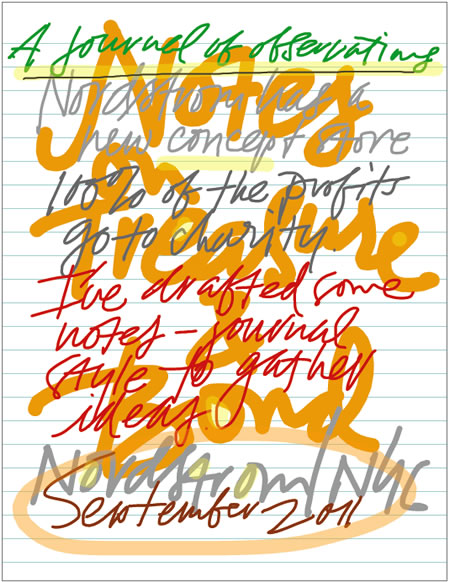 A journal of observations
Notes
on
Treasure
&
Bond
Nordstrom has a
new concept store
100% of the profits
go to charity.
I've drafted some
notes – journal
style – to gather
ideas
Nordstrom/NYC
September 2011